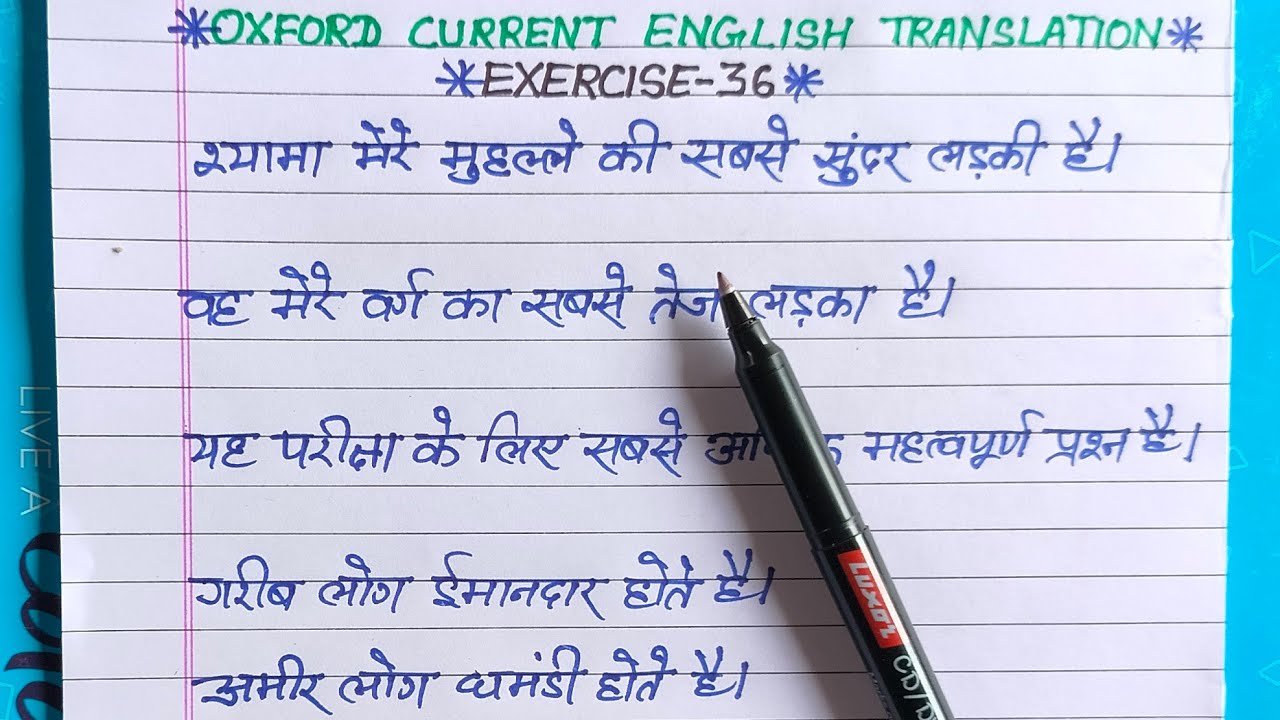 *OXFORD CURRENT ENGLISH TRANSLATION*
*EXERCISE-36*
श्यामा मेरे मुहल्ले की सबसे सुंदर लड़की है।
वह मेरे वर्ग का सबसे तेज लड़का है।
यह परीक्षा के लिए सबसे महत्वपूर्ण प्रश्न है।
गरीब लोग ईमानदार होते है।
अमीर लोग घमंडी होते है।
LUXOR
LIVE A